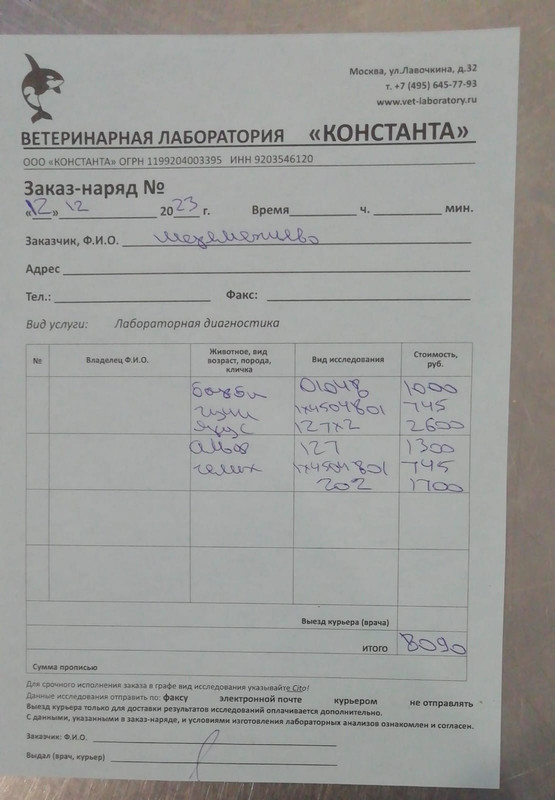 Москва, ул.Лавочкина, д.32
т. +7 (495) 645-77-93
www.vet-laboratory.ru
ВЕТЕРИНАРНАЯ ЛАБОРАТОРИЯ «КОНСТАНТА»
ООО «КОНСТАНТА» ОГРН 1199204003395 ИНН 9203546120
Заказ-наряд №
«12» 12 2023 г. Время ч. мин.
Заказчик, Ф.И.О.
Адрес
Тел.: Факс:
Вид услуги: Лабораторная диагностика
№ Владелец Ф.И.О. Животное, вид возраст, порода, кличка Вид исследования Стоимость, руб.
1000
745
127х2 2600
127 1300
745
202 1700
Выезд курьера (врача)
итого 8090
Сумма прописью
Для срочного исполнения заказа в графе вид исследования указывайте Cito!
Данные исследования отправить по: факсу электронной почте курьером не отправлять
Выезд курьера только для доставки результатов исследований оплачивается дополнительно.
С данными, указанными в заказ-наряде, и условиями изготовления лабораторных анализов ознакомлен и согласен.
Заказчик: Ф.И.О.
Выдал (врач, курьер)